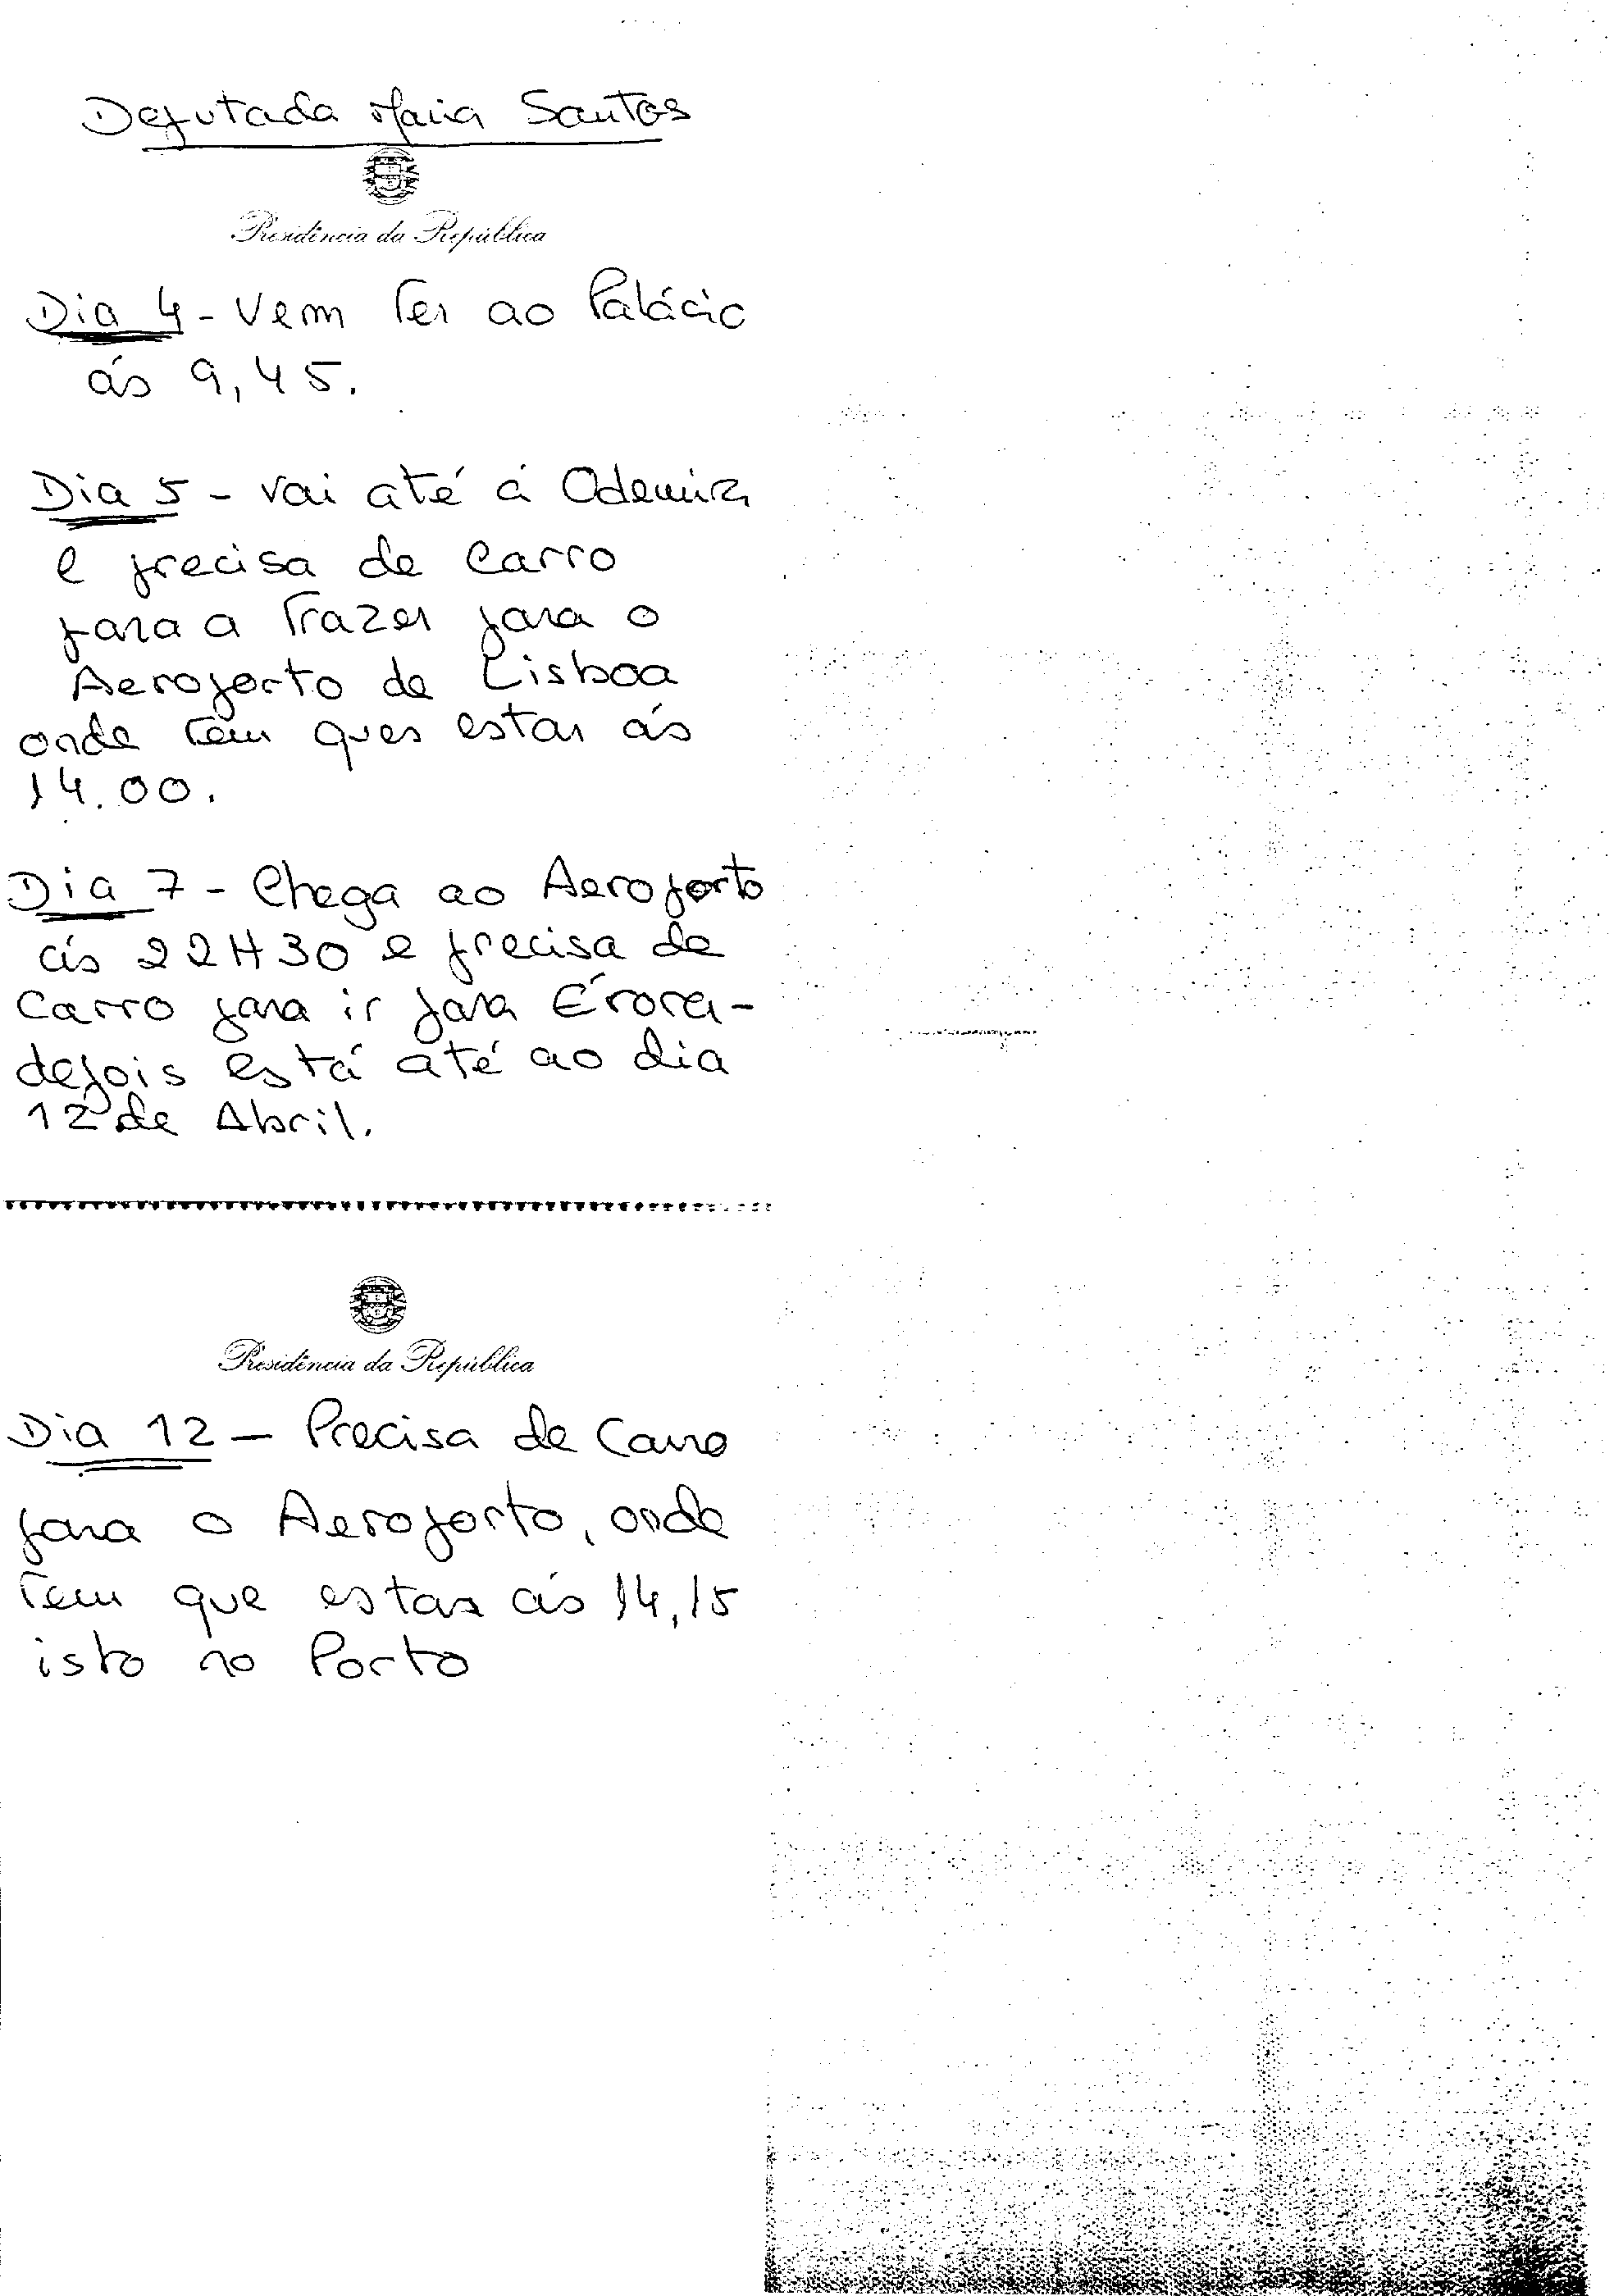 Deputada Maria Santos
Presidência da República
Dia 4 - Vem Ter ao Palácio
ás 9,45.
Dia 5 - Vai até á Odemira
e precisa de Carro
para a Trazer para o
Aeroporto de Lisboa
onde Tem ques estar ás
14.00.
Dia 7 - Chega ao Aeroporto
ás 22H30 e precisa de
Carro para ir para Évora -
depois está até ao dia
12 de Abril.
Presidência da República
Dia 12 - Precisa de Carro
para o Aeroporto, onde
Tem que estar ás 14,15
isto no Porto